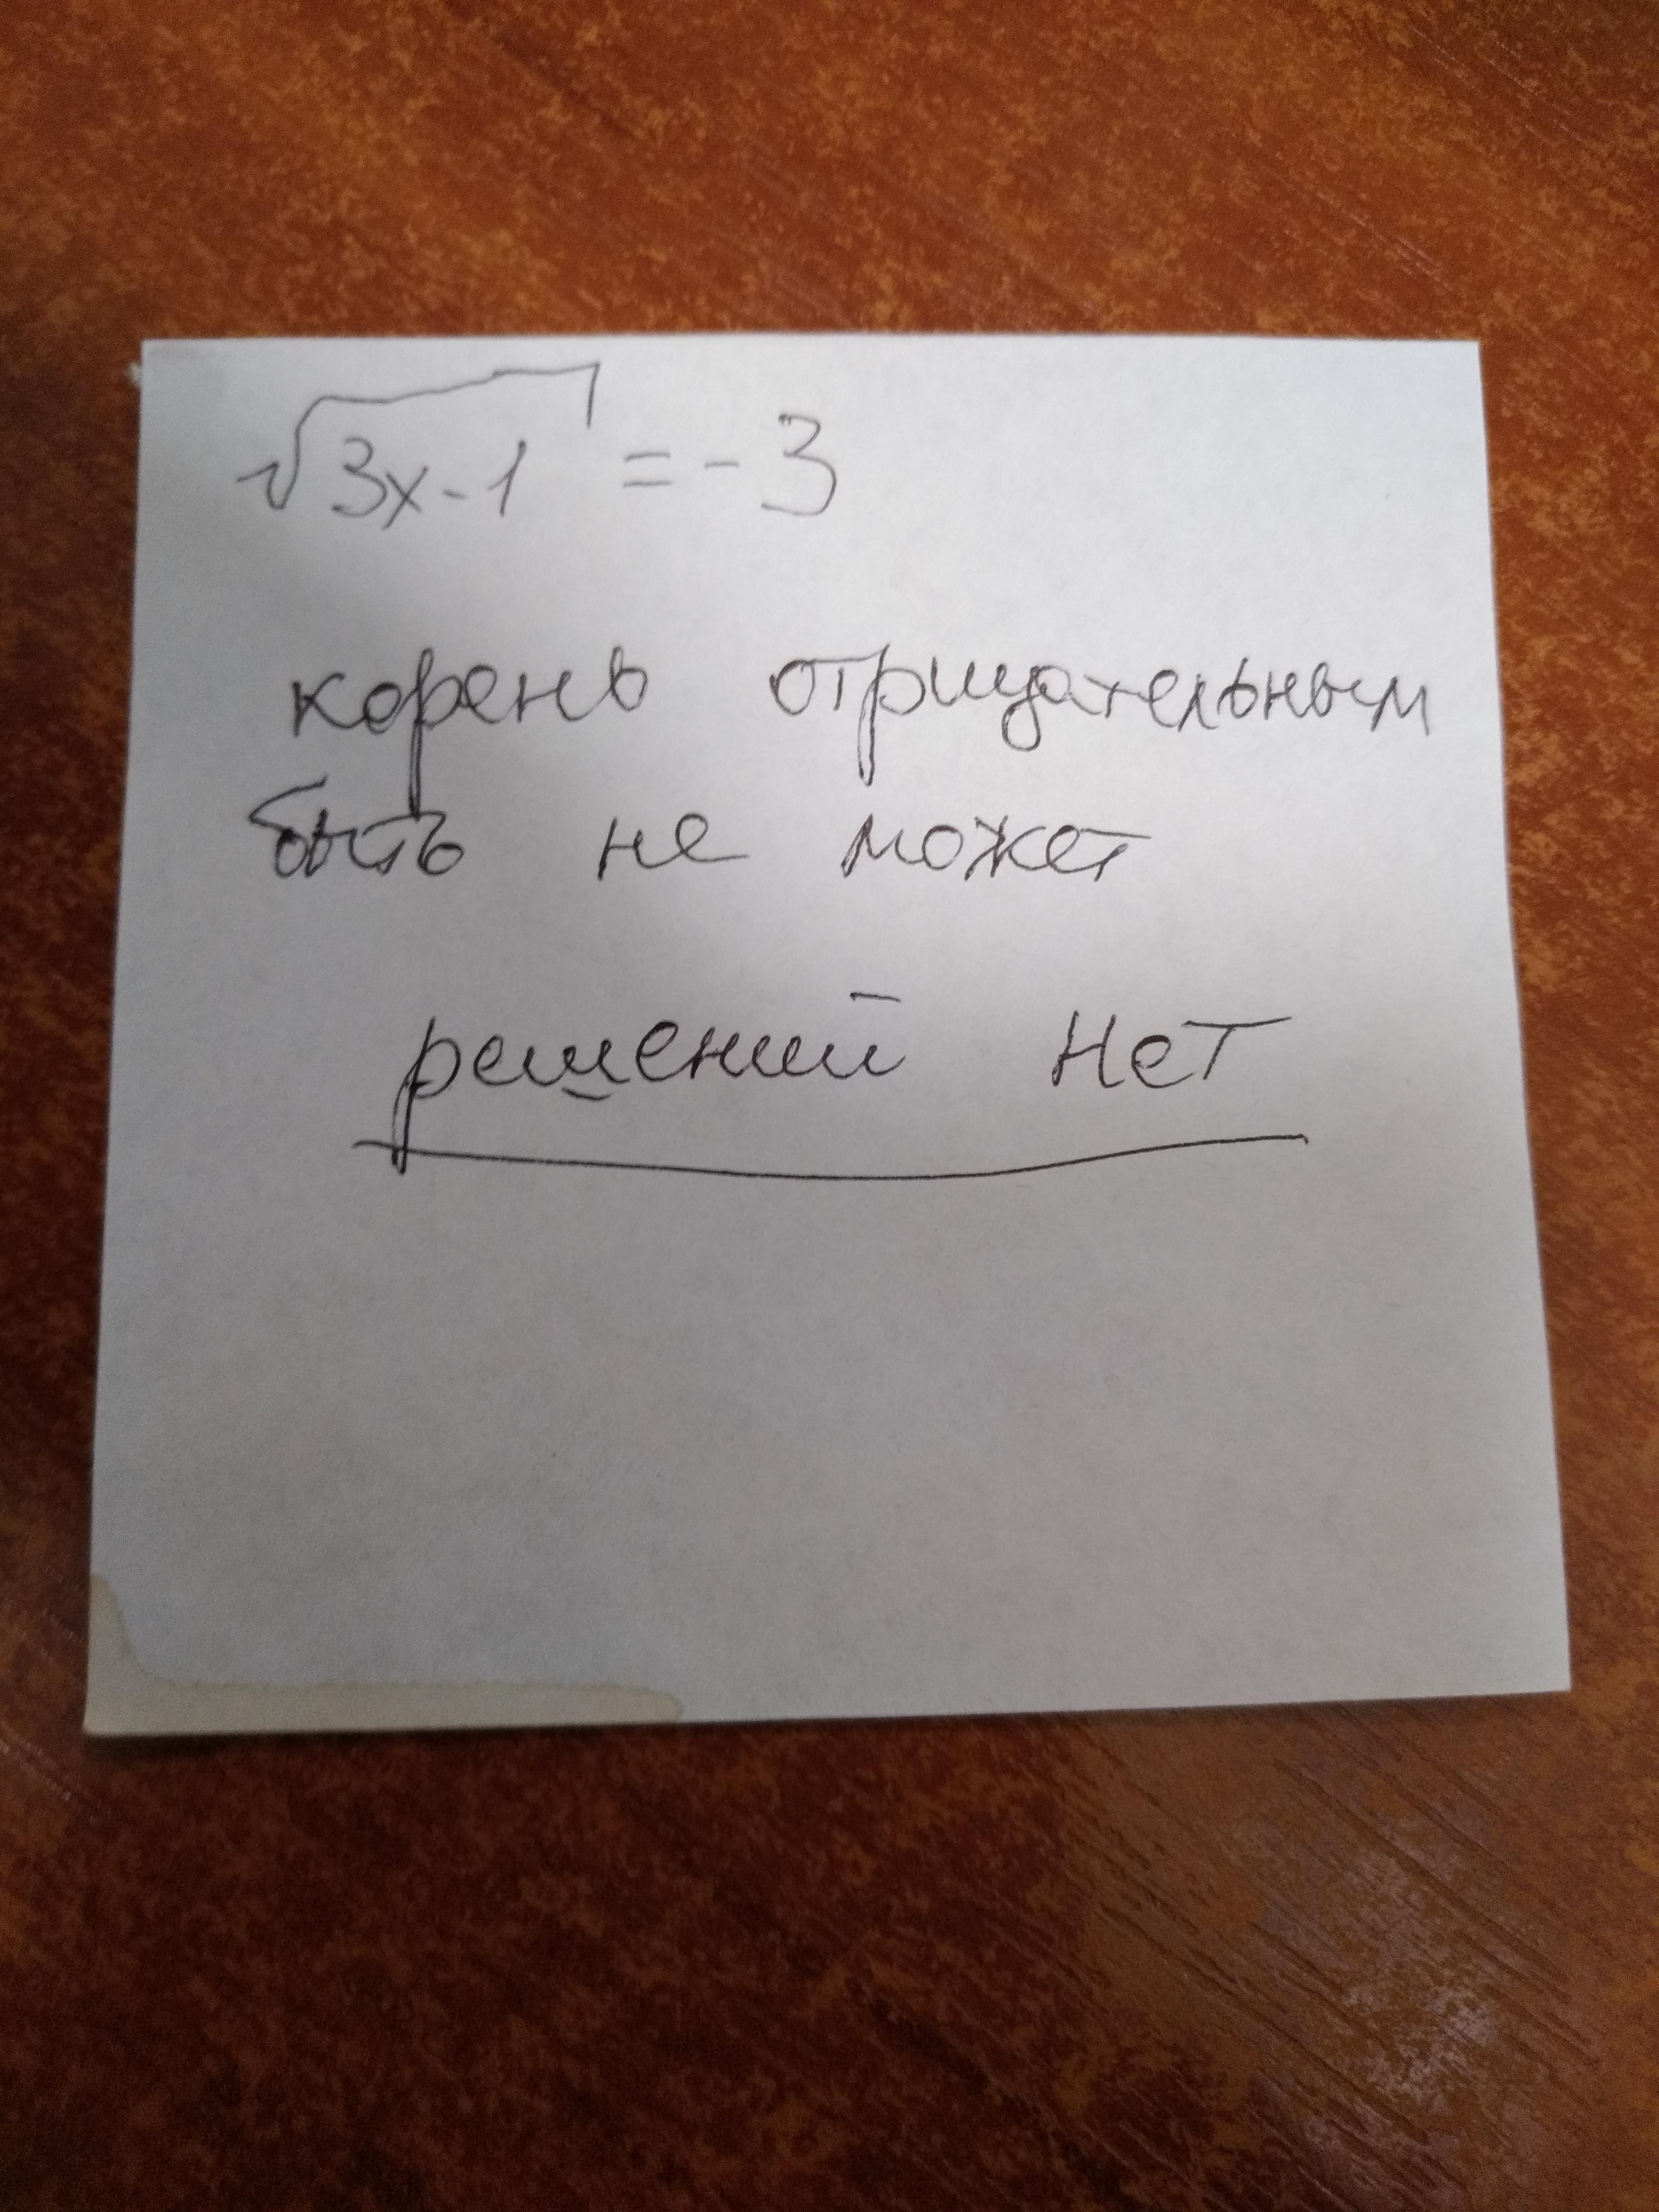 √3x-1 = -3
корень отрицательным
быть не может
решений нет